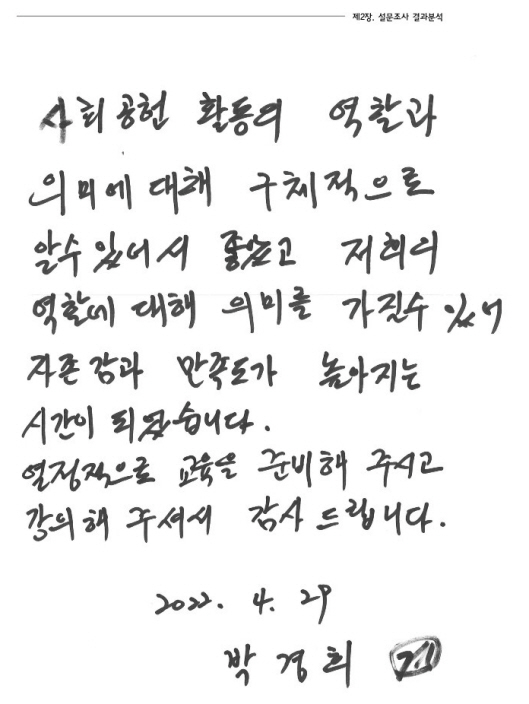 제2장. 설문조사 결과분석
사회공헌 활동의 역할과
의미에 대해 구체적으로
알수 있어서 좋았고 저희의
역할에 대해 의미를 가질수 있어
자존감과 만족도가 높아지는
시간이 되었습니다.
열정적으로 교육을 준비해 주시고
강의해 주셔서 감사 드립니다.
2022. 4. 29
박경희